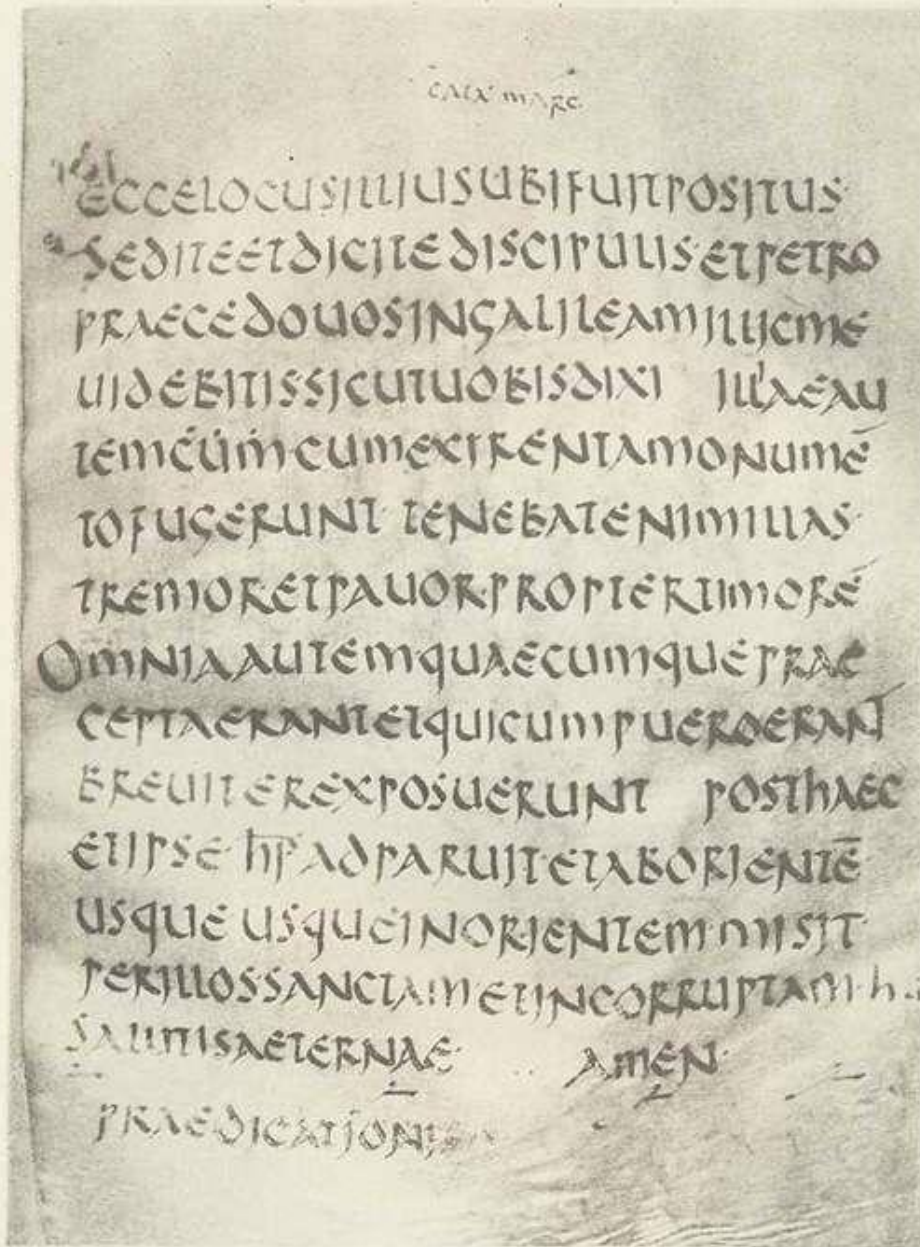 CATA MARC
ECCELOCUSILLIUSUBIFUITPOSITUS
SEDITEETDICITEDISCIPULIS·ETPETRO
PRAECEDOUOSINGALILEAMILLICME
UIDEBITISSICUTUOBISDIXI ILLAEAU
TEMCUMCUMEXIRENTAMONUMĒ
TOFUGERUNT TENEBATENIMILLAS·
TREMORETPAUOR·PROPTERTIMORĒ
OMNIAAUTEMQUAECUMQUEPRAE
CEPTAERANTETQUICUMPUEROERANT
BREUITEREXPOSUERUNT POSTHAEC
ETIPSE H̄P̄ADPARUIT·ETABORIENTĒ
USQUE USQUEINORIENTEM·MISIT
PERILLOSSANCTAMETINCORRUPTAM·H
SALUTISAETERNAE· AMEN·
PRAEDICATIONIS